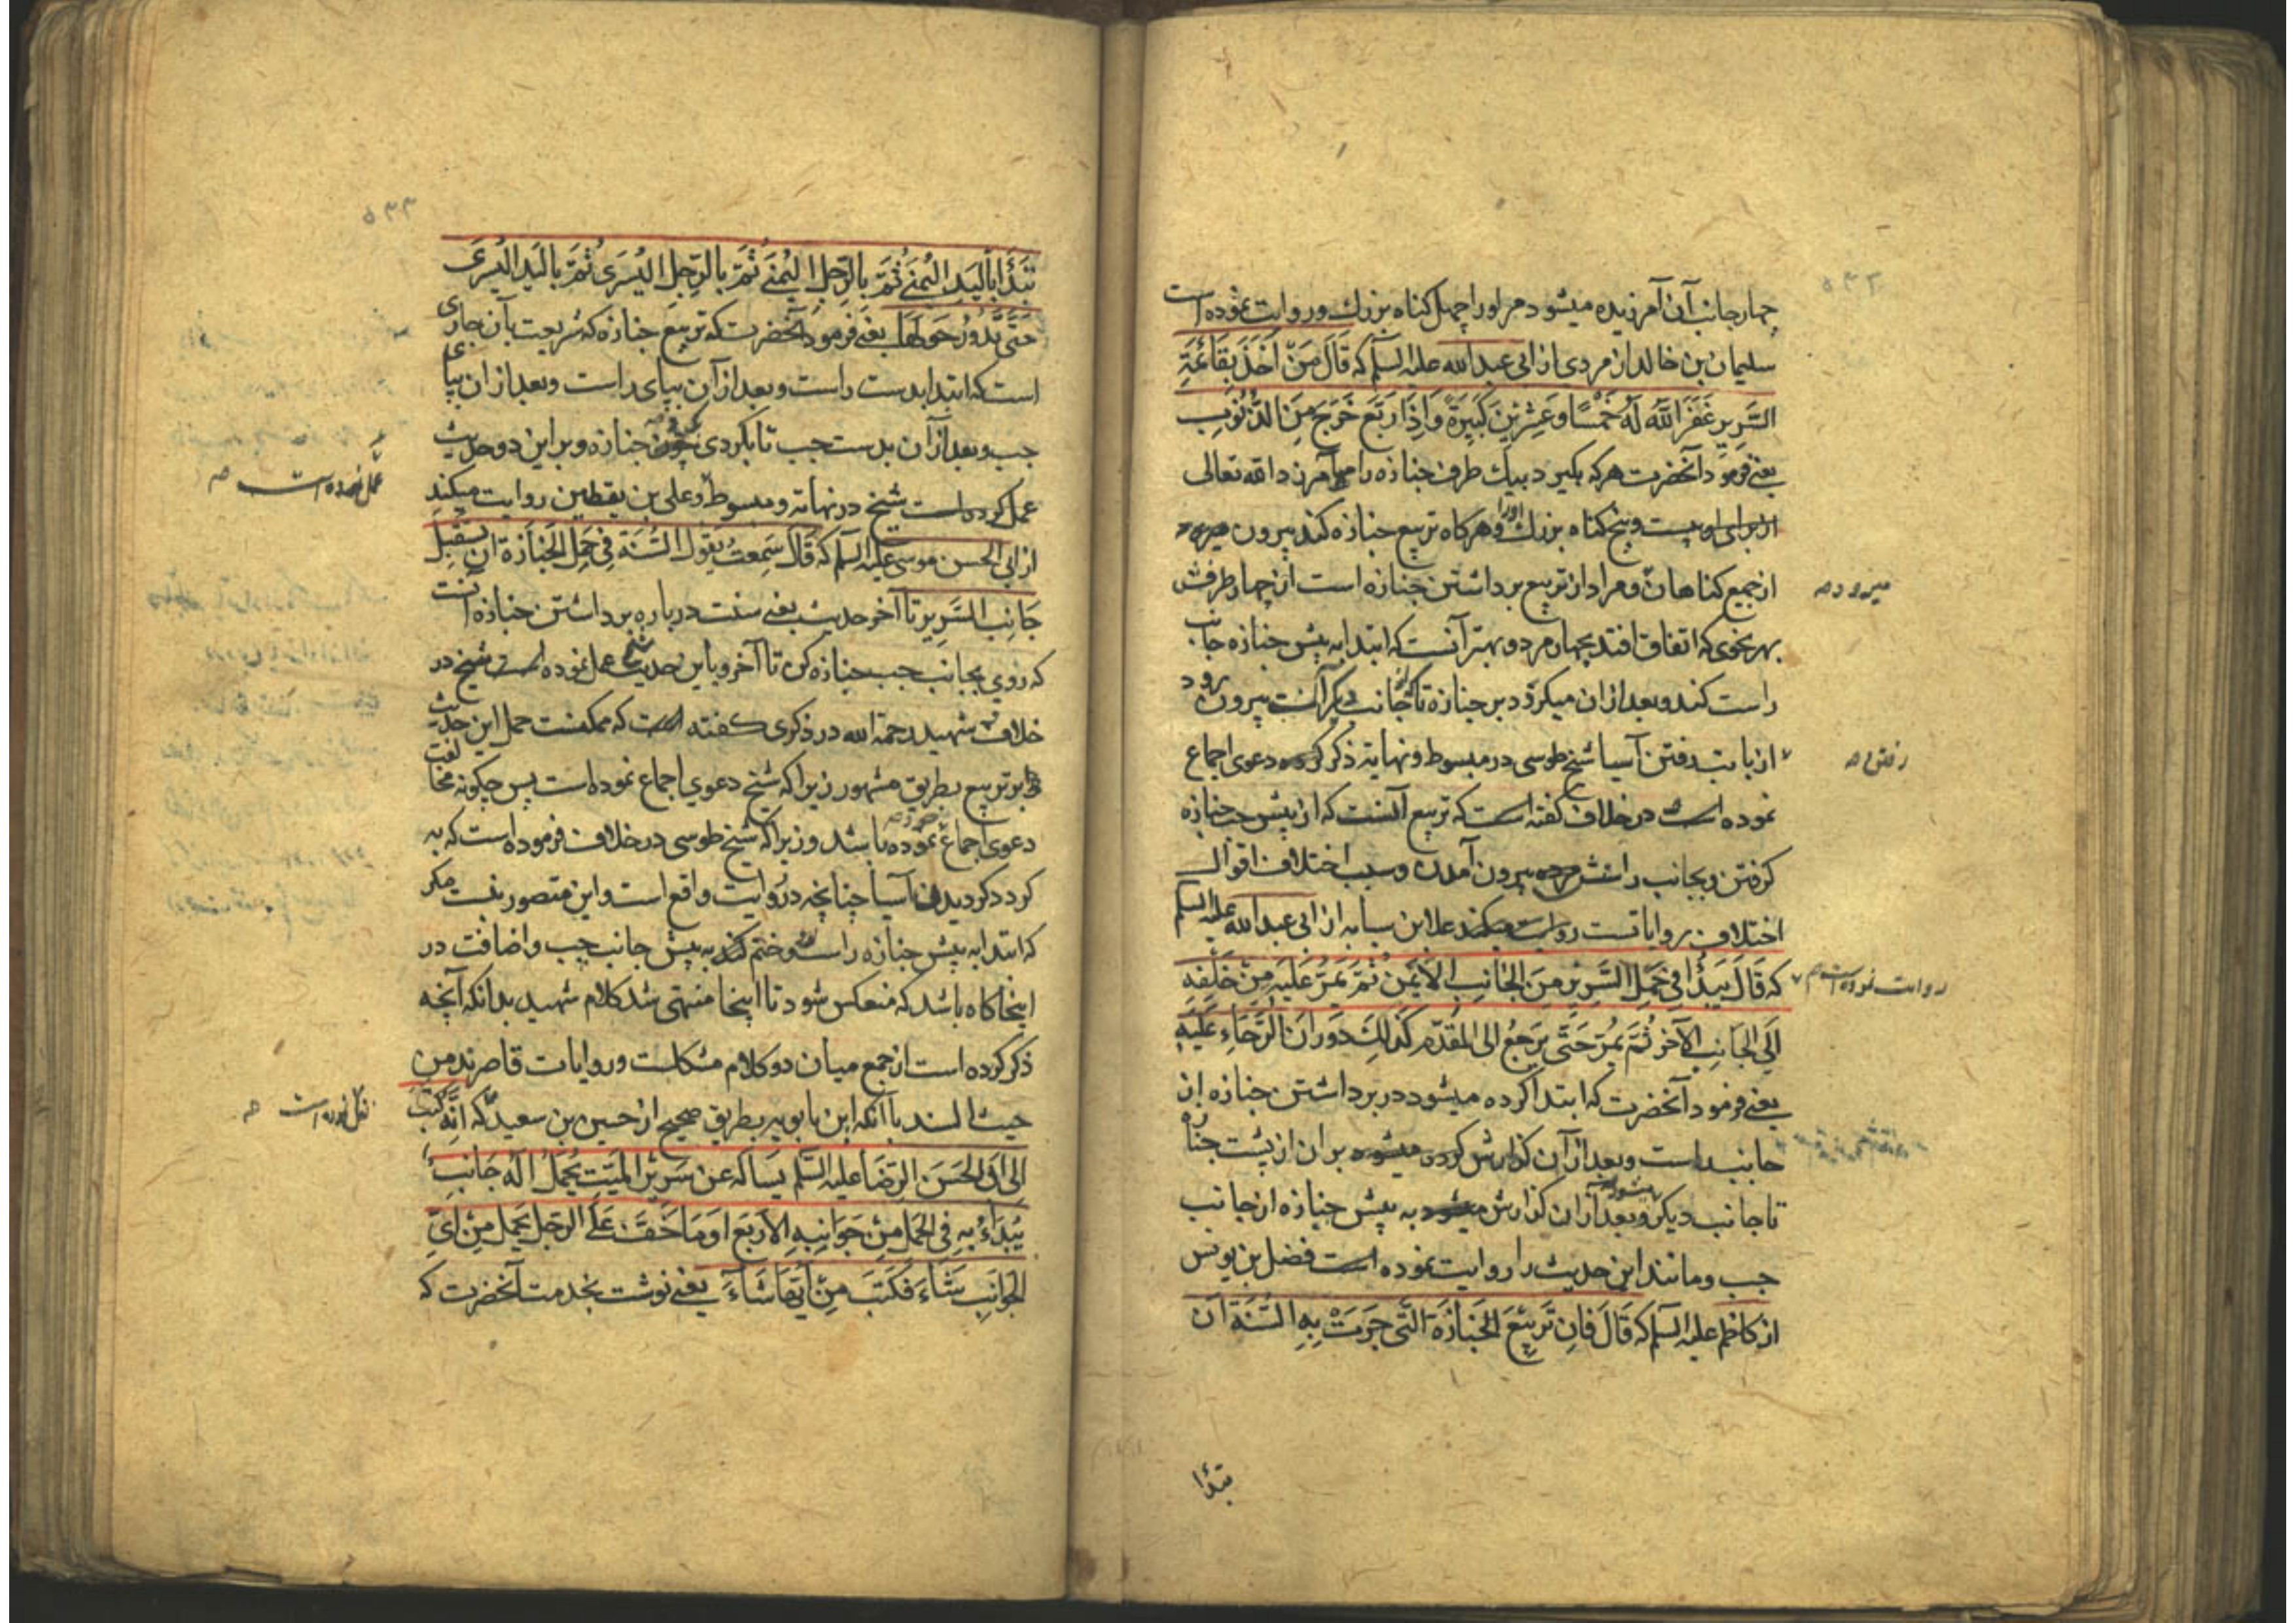 چهار جانب آن آمرزیده میشود مر اورا چهل کناه بزرك و روایت نموده است
سلیمان بن خالد از مردی از ابی عبد الله علیه السلم که قَالَ مَنْ اَخَذَ بِقَائِمَةِ
السَّرِیرِ غَفَرَ اللّٰهُ لَهُ خَمْسًا وَعِشْرِینَ کَبِیرَةً وَاِذَا رَبَّعَ خَرَجَ مِنَ الذُّنُوبِ
یعنی فرمود آنحضرت هر که بکیرد بیك طرف جنازه را میآمرزد الله تعالی
از برای او بیست و پنج کناه بزرك و هرکاه اورا تربیع جنازه کند بیرون
از جمیع کناهان و مراد از تربیع برداشتن جنازه است از چهار طرفش
میرود صه
بهر نحوی که اتفاق افتد بچهار مرد و بهتر آنست که ابتدا به پیش جنازه جانب
راست کند و بعد از ان میکردد بر جنازه تا از جانب دیکر آنست بیرون رود
از بابت رفتن آسیا شیخ طوسی در مبسوط و نهایة ذکر کرده دعوی اجماع
رفتن صه
نموده است در خلاف کفته است که تربیع آنست که از پیش جنازه
کرفتن و بجانب راستش بیرون آمدن و سبب اختلاف اقوال
اختلاف روایاتست روایت میکند علا بن سیابه از ابی عبد الله علیه السلم
که قَالَ یَبْدَأُ فِی حَمْلِ السَّرِیرِ مِنَ الْجَانِبِ الْاَیْمَنِ ثُمَّ یَمُرُّ عَلَیْهِ مِنْ خَلْفِهِ
روایت نموده است صه
اِلَی الْجَانِبِ الْآخَرِ ثُمَّ یَمُرُّ حَتّٰی یَرْجِعُ اِلَی الْمُقَدَّمِ کَذٰلِكَ دَوَرَانَ الرَّحَاءِ عَلَیْهِ
یعنی فرمود آنحضرت که ابتدا کرده میشود در برداشتن جنازه از
جانب راست و بعد از آن کذارش کرده میشود بر ان از پشت جنازه
تا جانب دیکر و بعد از ان کذارش میشود به پیش جنازه از جانب
چب و مانند این حدیث را روایت نموده است فضل بن یونس
از کاظم علیه السلم که قَالَ فَاِنْ تَرْبِیْعَ الْجَنَازَةَ الَّتِی جَرَتْ بِهِ السُّنَّةَ اَنْ
تبدأ
۳۳۵
تَبْدَأُ بِالْیَدِ الْیُمْنٰی ثُمَّ بِالرِّجْلِ الْیُمْنٰی ثُمَّ بِالرِّجْلِ الْیُسْرٰی ثُمَّ بِالْیَدِ الْیُسْرٰی
حَتّٰی تَدُورَ حَوْلَهَا یعنی فرمود آنحضرت که تربیع جنازه که شریعت بآن جاری
است که ابتدا بدست راست و بعد از آن بپای راست و بعد از ان بپای
چب و بعد از آن بدست چب تا بکردی جنازه و بر این دو حدیث
عمل کرده است شیخ در نهایة و مبسوط و علی بن یقطین روایت میکند
عمل نموده است صه
از ابی الحسن موسی علیه السلم که قَالَ سَمِعْتُ یَقُولُ السُّنَّةُ فِی حَمْلِ الْجَنَازَةِ اَنْ تَسْتَقْبِلَ
جَانِبَ السَّرِیرِ تا آخر حدیث یعنی سنت درباره برداشتن جنازه آنست
که روی بجانب چب جنازه کن تا آخر و باین حدیث عمل نموده است شیخ در
خلاف شهید رحمة الله در ذکری کفته است که ممکنست حمل این حدیث
بر تربیع بطریق مشهور زیرا که شیخ دعوی اجماع نموده است پس چکونه مخالفت
دعوی اجماع نموده باشد و زیرا که شیخ طوسی در خلاف فرموده است که به
کردد کردیدن آسیا چنانچه در روایت واقع است و این متصور نیست مکر
که ابتدا به پیش جنازه راست و ختم کند به پیش جانب چب و اضافت در
اینجا کاه باشد که منعکس شود تا اینجا منتهی شد کلام شهید بدانکه آنچه
ذکر کرده است از جمع میان دو کلام مشکلست و روایات قاصرند من
حیث السند با آنکه ابن بابویه بطریق صحیح از حسین بن سعید که اَنَّهُ کَتَبَ
نقل نموده است صه
اِلٰی اَبِی الْحَسَنِ الرِّضَا عَلَیْهِ السَّلَم یَسْاَلَهُ عَنْ سَرِیْرِ الْمَیِّتِ یُحْمَلُ اَلَهُ جَانِبٌ
یُبْدَاءُ بِهِ فِی الْحَمْلِ مِنْ جَوَانِبِهِ الْاَرْبَعِ اَوْ مَا خَفَّ عَلَی الرَّجُلِ یَحْمِلُ مِنْ اَیِّ
الْجَوَانِبِ شَاءَ فَکَتَبَ مِنْ اَیِّهَا شَاءَ یعنی نوشت بخدمت آنحضرت که